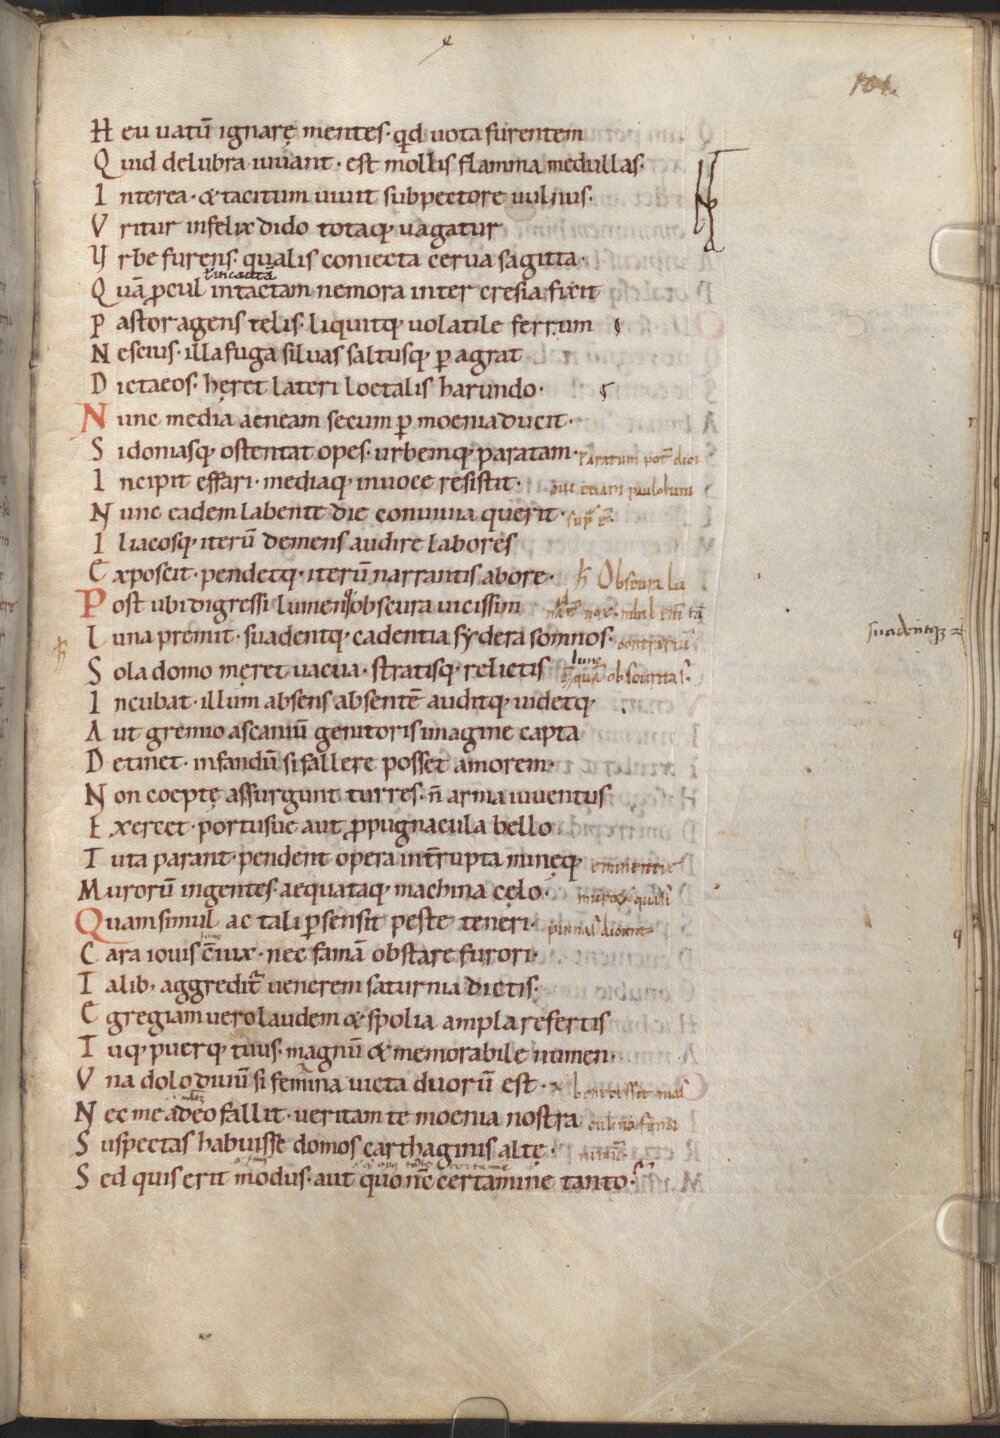 101.
Heu uatū ignarę mentes · qđ uota furentem
Quid delubra iuuant · est mollis flamma medullas·
Interea · & tacitum uiuit sub pectore uulnus·
Vritur infelix dido totaq; uagatur
Vrbe furens· qualis coniecta cerua sagitta·
Quā ꝓcul intactam nemora inter cresia fixit
Pastor agens telis· liquitq; uolatile ferrum
Nescius· illa fuga siluas saltusq; ꝑagrat
Dictaeos· hęret lateri loetalis harundo·
Nunc media aeneam secum ꝑ moenia ducit·
Sidoniasq; ostentat opes· urbemq; paratam·
Incipit effari· mediaq; in uoce resistit·
Nunc eadem labente die conuiuia querit·
Iliacosq; iterū demens audire labores
Exposcit· pendetq; iterū narrantis abore·
Post ubi digressi lumenq; obscura uicissim
ħ Obscura lu
Luna premit· suadentq; cadentia sydera somnos·
suadentq;
Sola domo męret uacua· stratisq; relictis
lune
obscuritas·
Incubat· illum absens absentē auditq; uidetq;
Aut gremio ascaniū genitoris imagine capta
Detinet· infandū si fallere posset amorem·
Non coeptę assurgunt turres· ñ arma iuuentus
Exercet· portusue aut ꝓpugnacula bello
Tuta parant· pendent opera int̄rupta minęq;
eminentie
Murorū ingentes· aequataq; machina cęlo·
murorū quasi
Quam simul ac tali ꝑsensit peste teneri·
Cara iouis c̄iux· nec famā obstare furori·
Talib; aggredit᷑ uenerem saturnia dictis·
Egregiam uero laudem & spolia ampla refertis
Tuq; puerq; tuus· magnū & memorabile numen·
Vna dolo diuū si femina uicta duorū est·
Nec me adeo fallit· ueritam te moenia nostra
Suspectas habuisse domos carthaginis altę·
Sed quis erit modus· aut quo nc̄ certamine tanto·